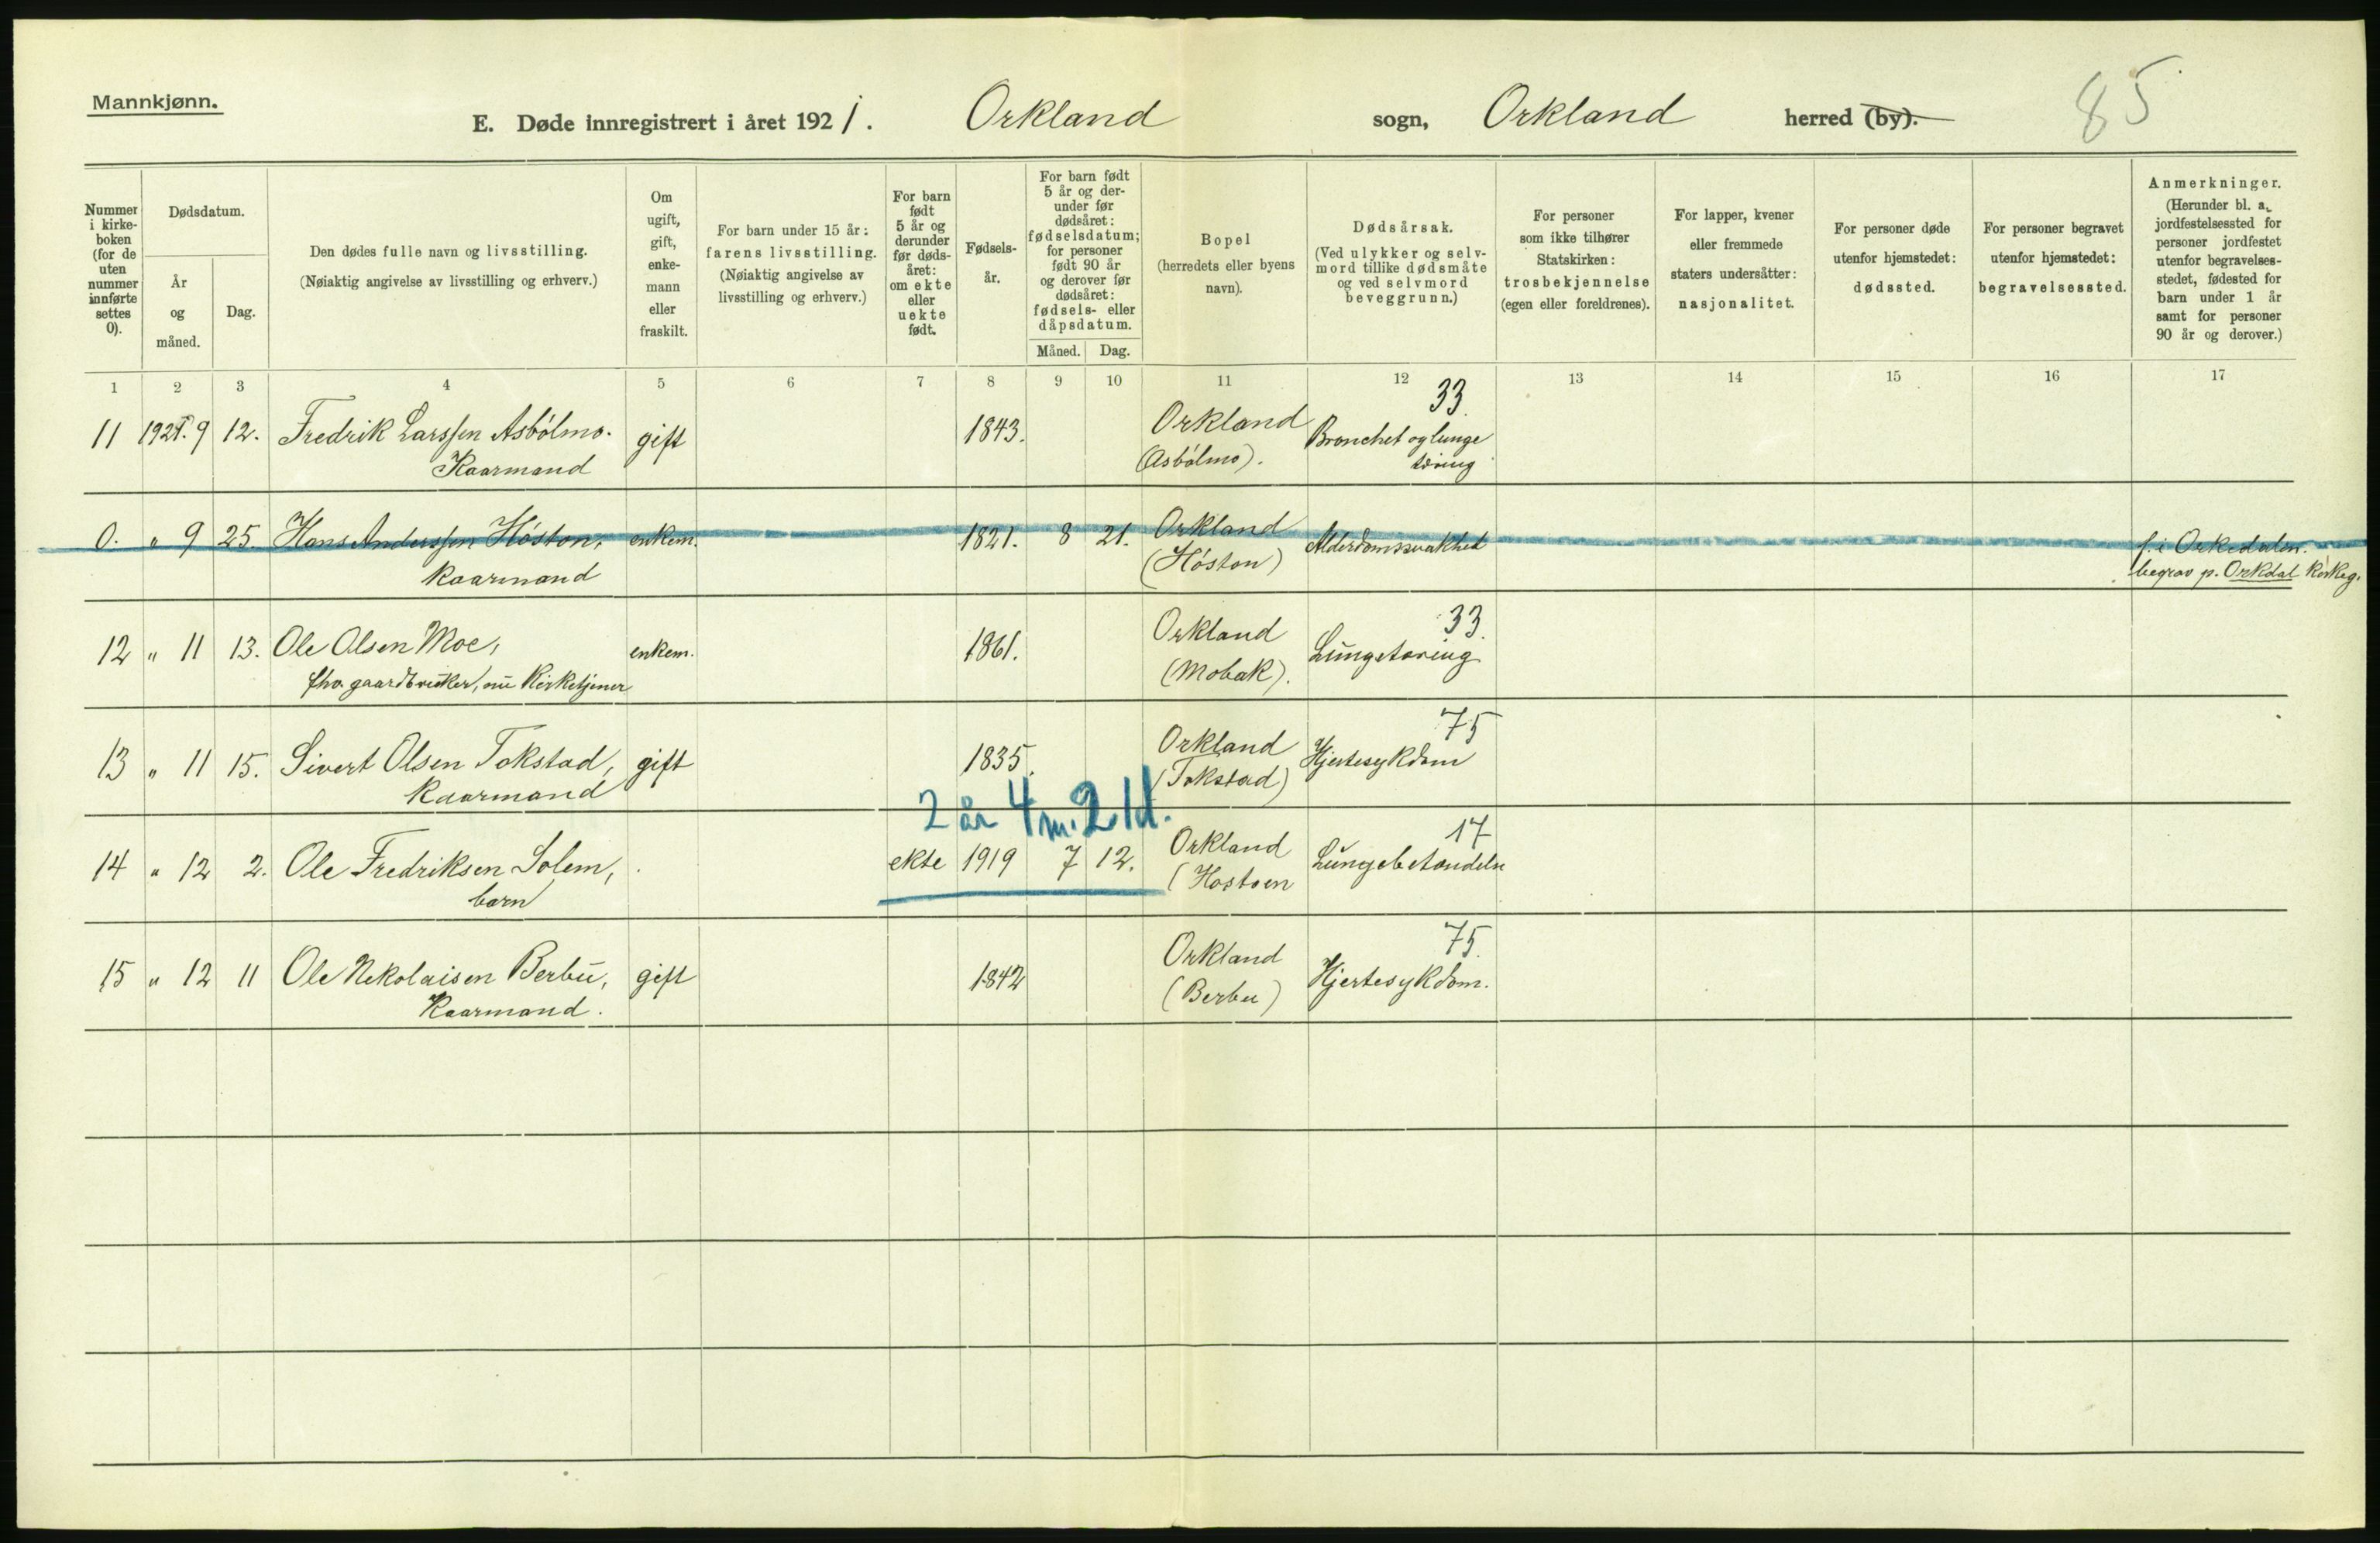 Mannkjønn.
E. Døde innregistrert i året 1921. Orkland sogn, Orkland herred (by).
85
Nummer i kirke-boken (for de uten nummer innførte settes 0).
Dødsdatum.
År og måned.
Dag.
Den dødes fulle navn og livsstilling.
(Nøiaktig angivelse av livsstilling og erhverv.)
Om ugift, gift, enke-mann eller fraskilt.
For barn under 15 år: farens livsstilling.
(Nøiaktig angivelse av livsstilling og erhverv.)
For barn født 5 år og derunder før døds-året: om ekte eller uekte født.
Fødsels-år.
For barn født 5 år og der-under før dødsåret: fødselsdatum; for personer født 90 år og derover før dødsåret: fødsels- eller dåpsdatum.
Måned.
Dag.
Bopel
(herredets eller byens navn).
Dødsårsak.
(Ved ulykker og selv-mord tillike dødsmåte og ved selvmord beveggrunn.)
For personer som ikke tilhører Statskirken: trosbekjennelse
(egen eller foreldrenes).
For lapper, kvener eller fremmede staters undersåtter: nasjonalitet.
For personer døde utenfor hjemstedet: dødssted.
For personer begravet utenfor hjemstedet: begravelsessted.
Anmerkninger.
(Herunder bl. a. jordfestelsessted for personer jordfestet utenfor begravelses-stedet, fødested for barn under 1 år samt for personer 90 år og derover.)
1 2 3 4 5 6 7 8 9 10 11 12 13 14 15 16 17
33
11 1921. 9 12. Fredrik Larssen Asbólmo. gift 1843. Orkland Bronchet og lunge
Kaarmand (Asbólmo). tæring
0. " 9 25. Hans Anderssen Hóston, enkem. 1821. 8 21. Orkland Alderdomssvakhet f. i Orkedalen.
Kaarmand (Hóston) begrav p. Orkdal Kirkeg.
33.
12 " 11 13. Ole Olsen Moe, enkem. 1861. Orkland Lungetæring
fhv. gaardbruker, nu Kirketjener (Mobak).
75
13 " 11 15. Sivert Olsen Tokstad, gift 1835. Orkland Hjertesykdom
Kaarmand (Tokstad)
2 år 4 m. 21 d.
17
14 " 12 2. Ole Fredriksen Solem, ekte 1919 7 12. Orkland Lungebetændelse
barn (Hostoen
75.
15 " 12 11 Ole Nikolaisen Berbu, gift 1842 Orkland Hjertesykdom.
Kaarmand. (Berbu)